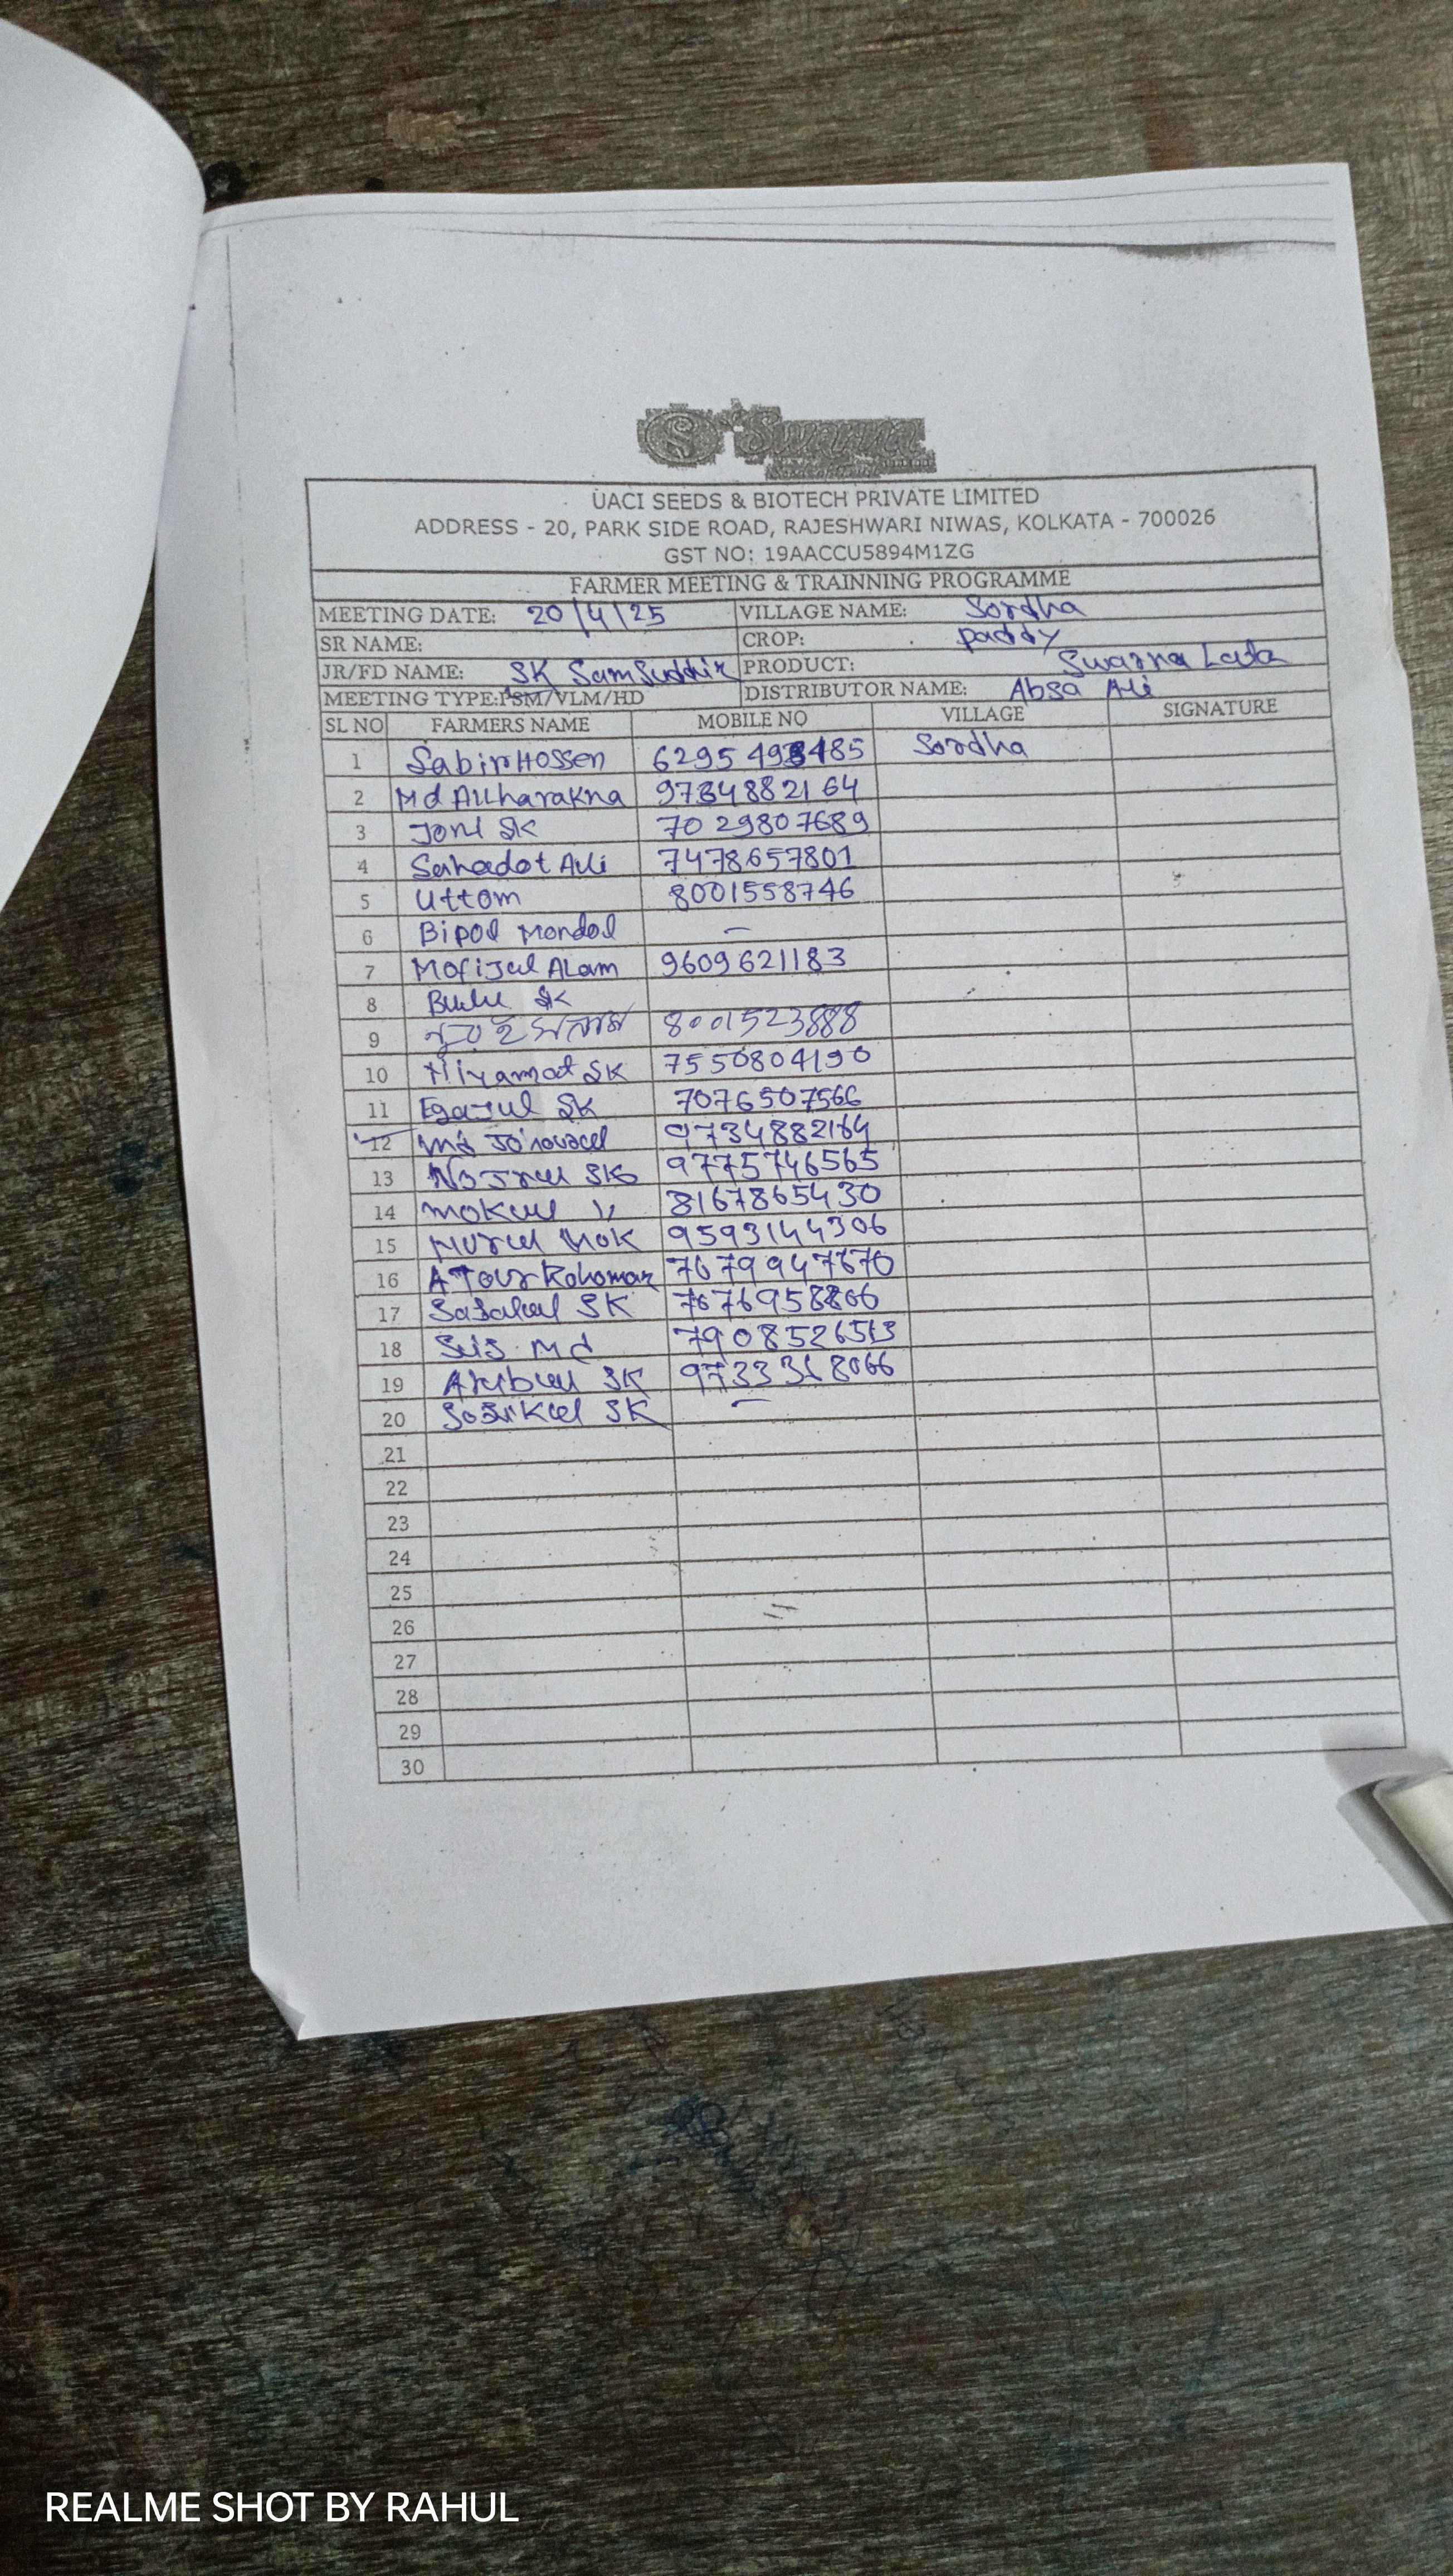 Swarna
UACI SEEDS & BIOTECH PRIVATE LIMITED
ADDRESS - 20, PARK SIDE ROAD, RAJESHWARI NIWAS, KOLKATA - 700026
GST NO: 19AACCU5894M1ZG
FARMER MEETING & TRAINNING PROGRAMME
MEETING DATE: 20/4/25 VILLAGE NAME: Sordha
SR NAME: CROP: Paddy
JR/FD NAME: SK Samsuddin PRODUCT: Swarna Lata
MEETING TYPE:PSM/VLM/HD DISTRIBUTOR NAME: Absa Ali
SL NO FARMERS NAME MOBILE NO VILLAGE SIGNATURE
1 Sabir Hossen Sordha
2 Md Allharakna 9734882164
3 Joni SK 7029807689
4 Sahadot Ali 7478657801
5 Uttom 8001558746
6 Bipod Mondal —
7 Mofijul Alam 9609621183
8 Bulu SK
9 8001523888
10 SK 7550804190
11 Egajul SK 7076507566
12 Md 9734882164
13 SK 9775746565
14 Mokul 〃 8167865430
15 Nurul Hok 9593144306
16 Ataur Rohoman 7679947670
17 SK
18 Md
19 SK
20 SK —
21
22
23
24
25
26
27
28
29
30
REALME SHOT BY RAHUL